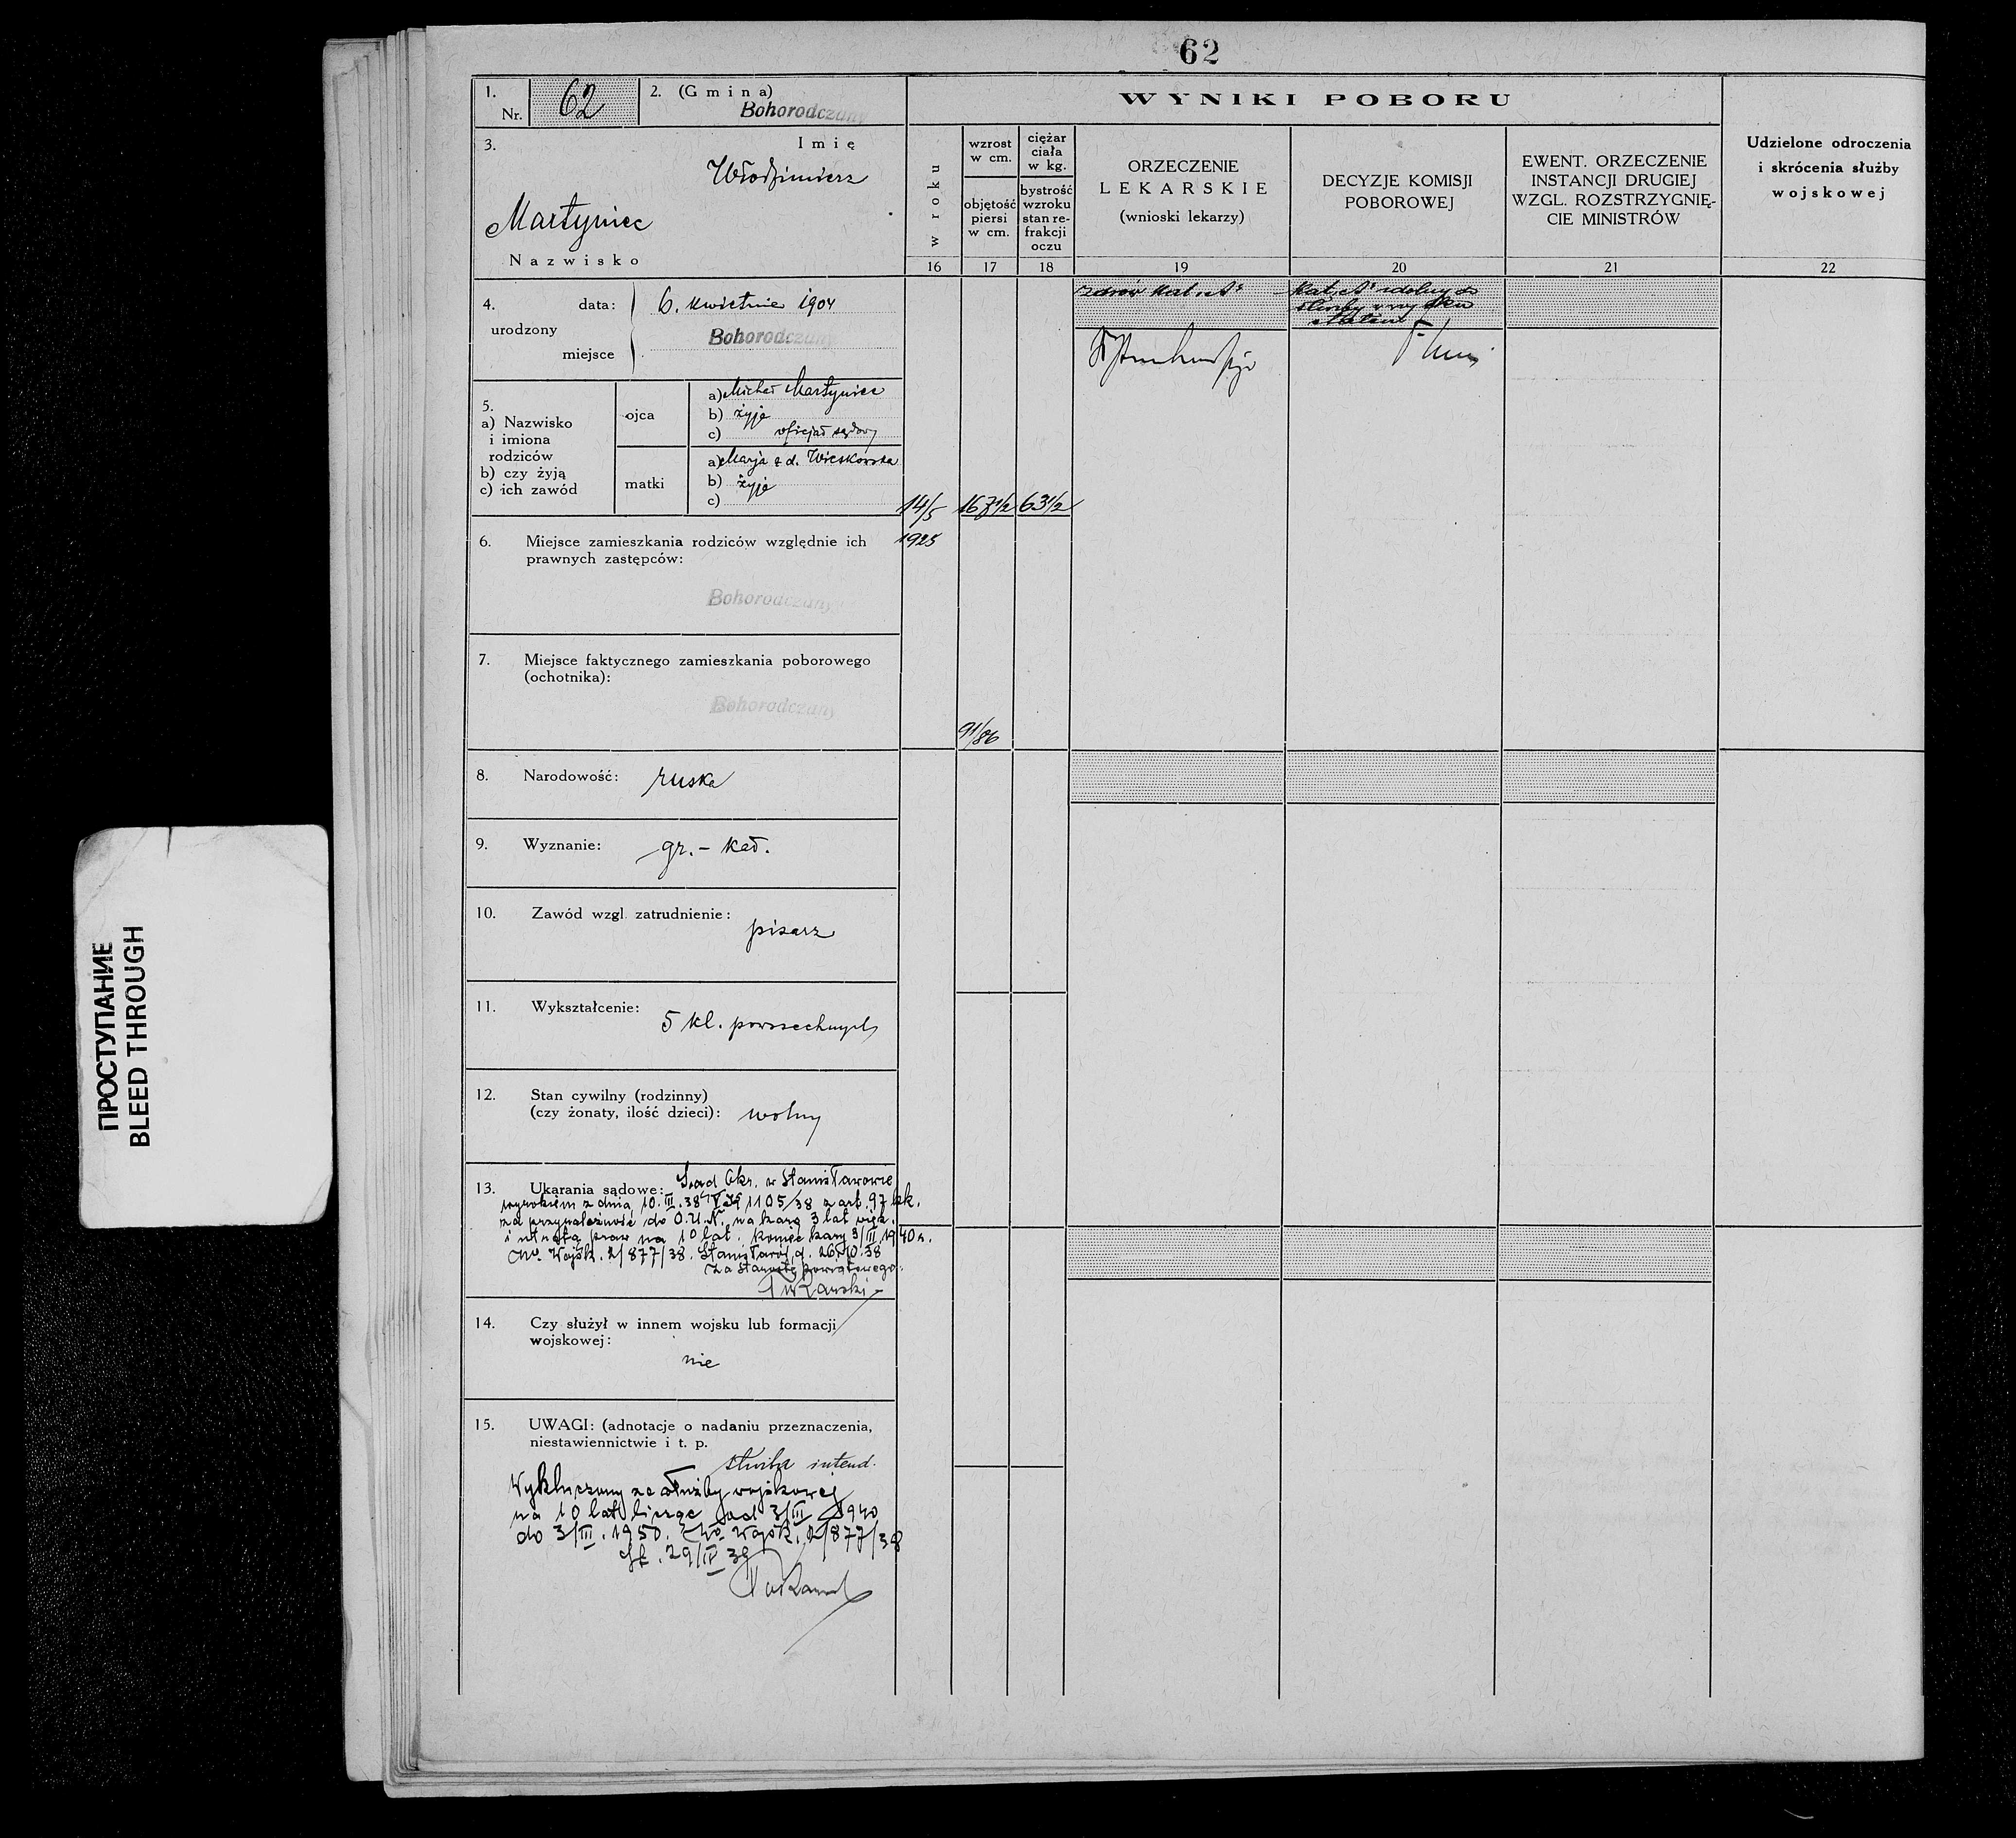 62
1.
Nr. 62
2. (Gmina)
Bohorodczany
3. Imię
Włodzimierz
Martyniec
Nazwisko
4. urodzony
data: 6. kwietnia 1904
miejsce Bohorodczany
5.
a) Nazwisko
i imiona
rodziców
b) czy żyją
c) ich zawód
ojca
a) Michał Martyniec
b) żyje
c) oficjał sądowy
matki
a) Marja z d. Wieskowska
b) żyje
c)
6. Miejsce zamieszkania rodziców względnie ich
prawnych zastępców:
Bohorodczany
7. Miejsce faktycznego zamieszkania poborowego
(ochotnika):
Bohorodczany
8. Narodowość: ruska
9. Wyznanie: gr.-kat.
10. Zawód wzgl. zatrudnienie:
pisarz
11. Wykształcenie:
5 kl. powszechnych
12. Stan cywilny (rodzinny)
(czy żonaty, ilość dzieci): wolny
13. Ukarania sądowe: Sąd Okr. w Stanisławowie
wyrokiem z dnia 10.III.38 1105/38 z art. 97 kk.
za przynależność do O.U.N. na karę 3 lat więz.
i utratą praw na 10 lat. koniec kary 3/III 1940 r.
Nr. Wojsk. 2/877/38. Stanisławów d. 26 38
za starostę powiatowego
14. Czy służył w innem wojsku lub formacji
wojskowej:
nie
15. UWAGI: (adnotacje o nadaniu przeznaczenia,
niestawiennictwie i t. p.
służba intend.
Wykluczony ze służby wojskowej
na 10 lat licząc od 3/III 1940
do 3/III.1950. Wojsk. 2/877/38
29/IV 38
WYNIKI POBORU
w roku
wzrost
w cm.
objętość
piersi
w cm.
ciężar
ciała
w kg.
bystrość
wzroku
stan re-
frakcji
oczu
ORZECZENIE
LEKARSKIE
(wnioski lekarzy)
DECYZJE KOMISJI
POBOROWEJ
EWENT. ORZECZENIE
INSTANCJI DRUGIEJ
WZGL. ROZSTRZYGNIĘ-
CIE MINISTRÓW
Udzielone odroczenia
i skrócenia służby
wojskowej
16 17 18 19 20 21 22
zdrów kat. "A"
kat. "A" zdolny do
służby w wojsku
14/5 167 1/2 63 1/2
1925
91/86
ПРОСТУПАНИЕ
BLEED THROUGH